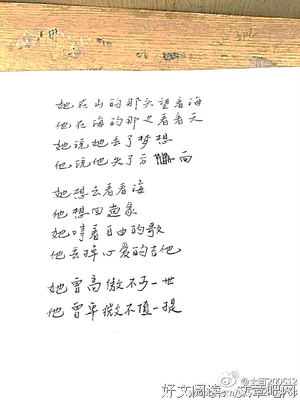 她在山的那头望着海
他在海的那边看着天
她说她丢了梦想
他说他失了方向
她想去看看海
他想回趟家
她哼着自由的歌
他丢掉心爱的吉他
她曾高傲不可一世
他曾卑微不值一提
好文阅读:文章吧网